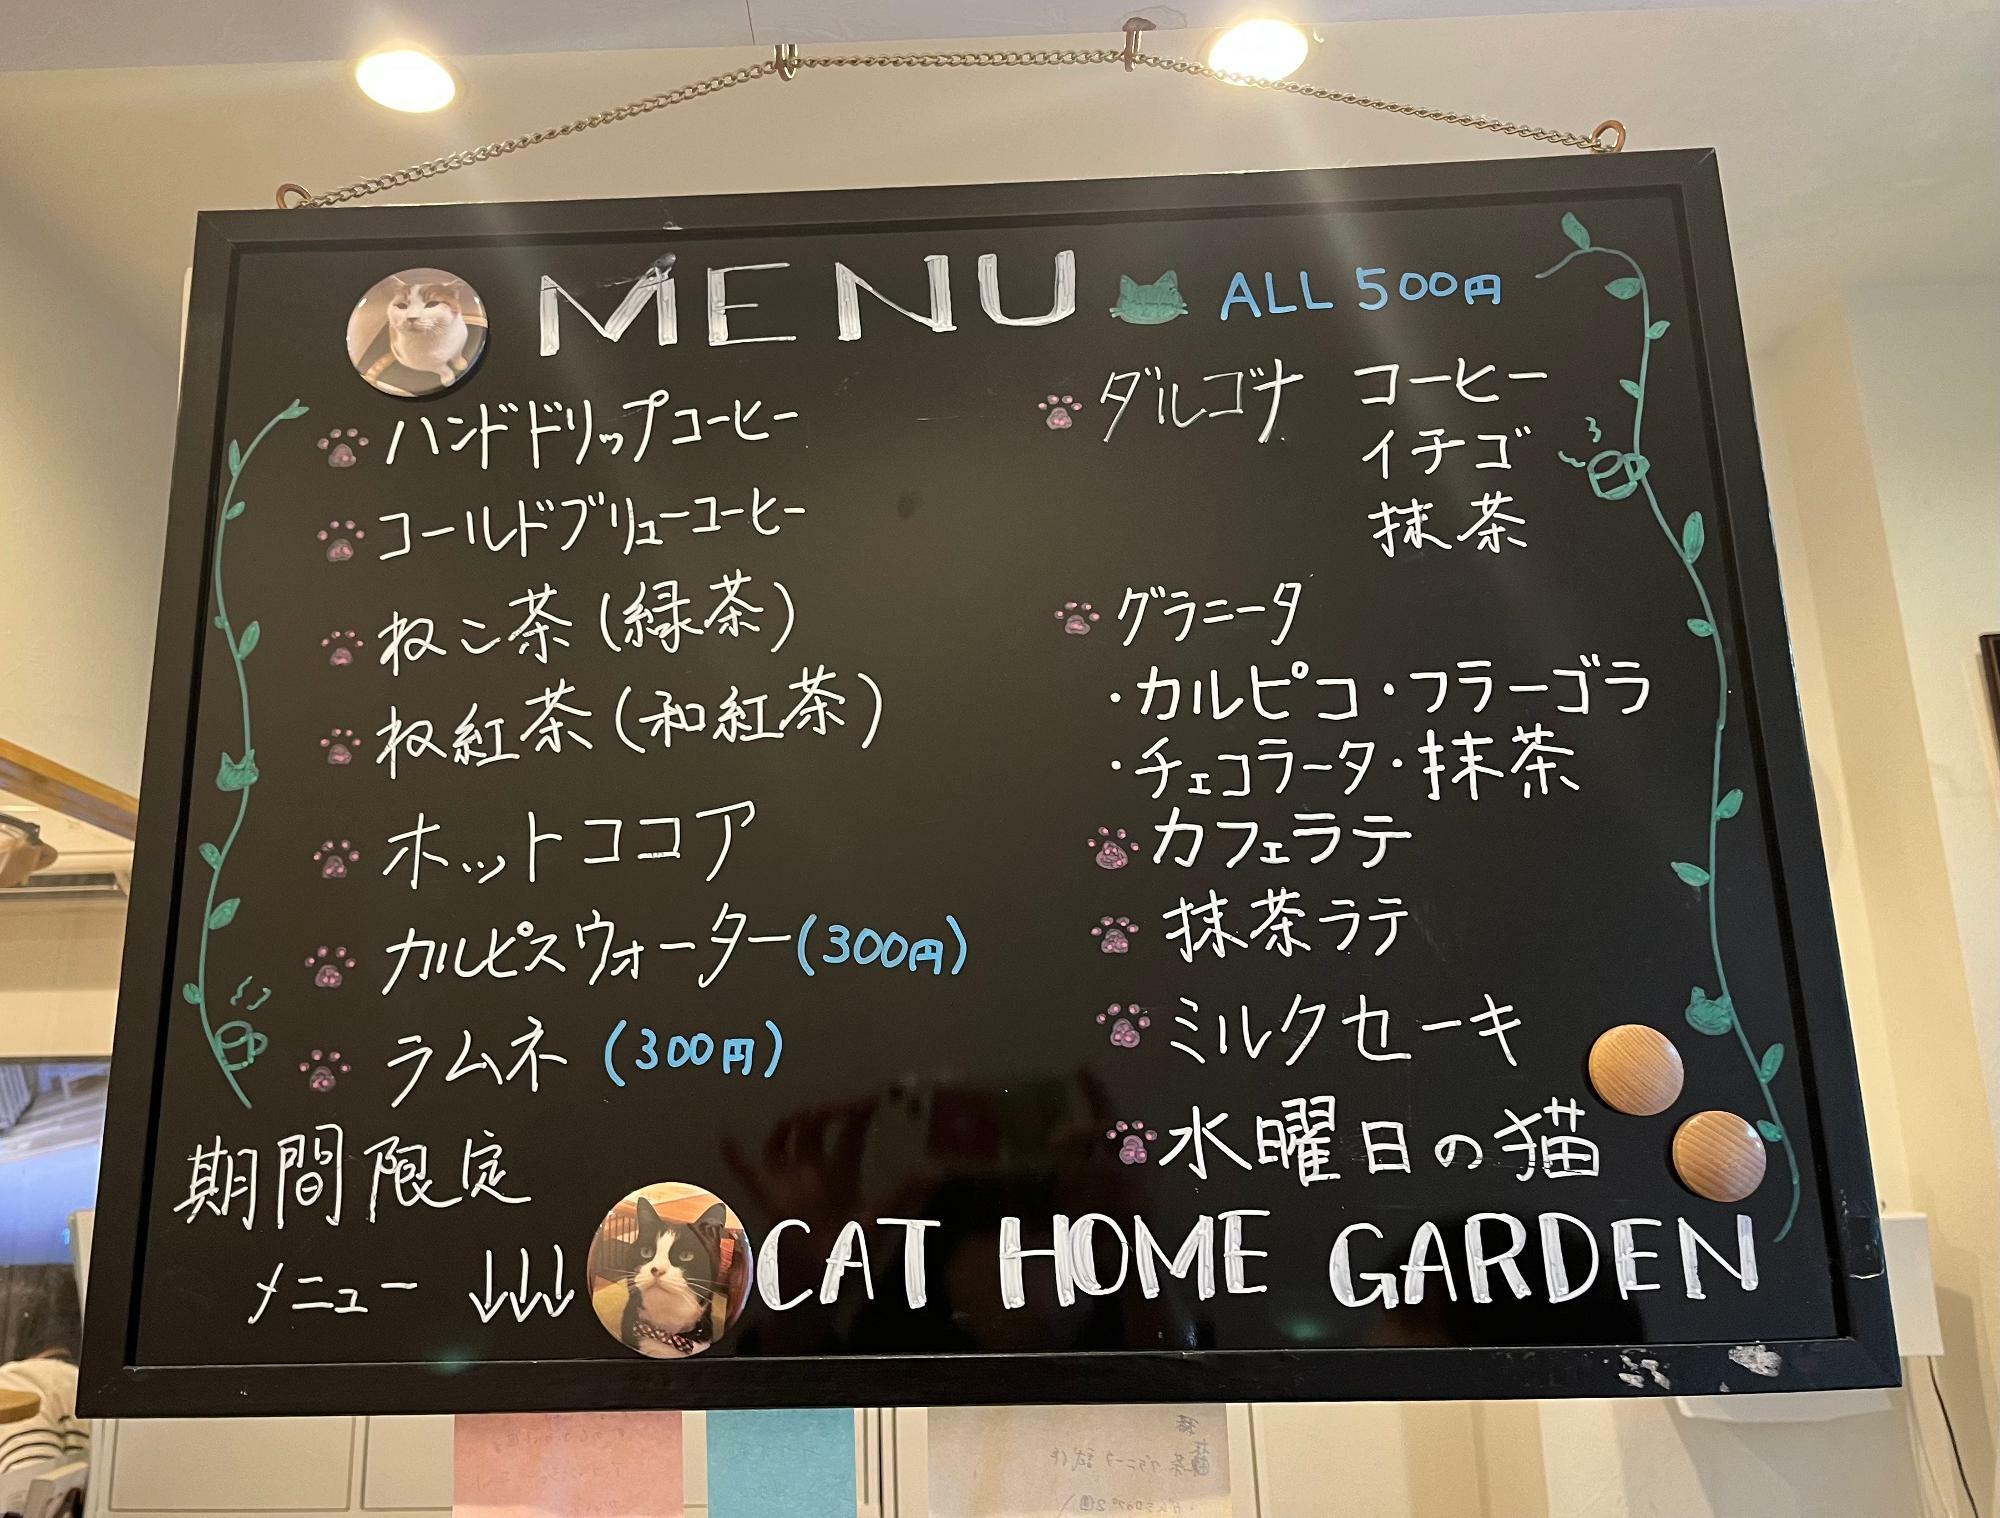 MENU ALL 500円
ハンドドリップコーヒー
コールドブリューコーヒー
ねこ茶(緑茶)
ね紅茶(和紅茶)
ホットココア
カルピスウォーター(300円)
ラムネ (300円)
期間限定
メニュー ↓↓↓
ダルゴナ コーヒー
イチゴ
抹茶
グラニータ
・カルピコ・フラーゴラ
・チェコラータ・抹茶
カフェラテ
抹茶ラテ
ミルクセーキ
水曜日の猫
CAT HOME GARDEN